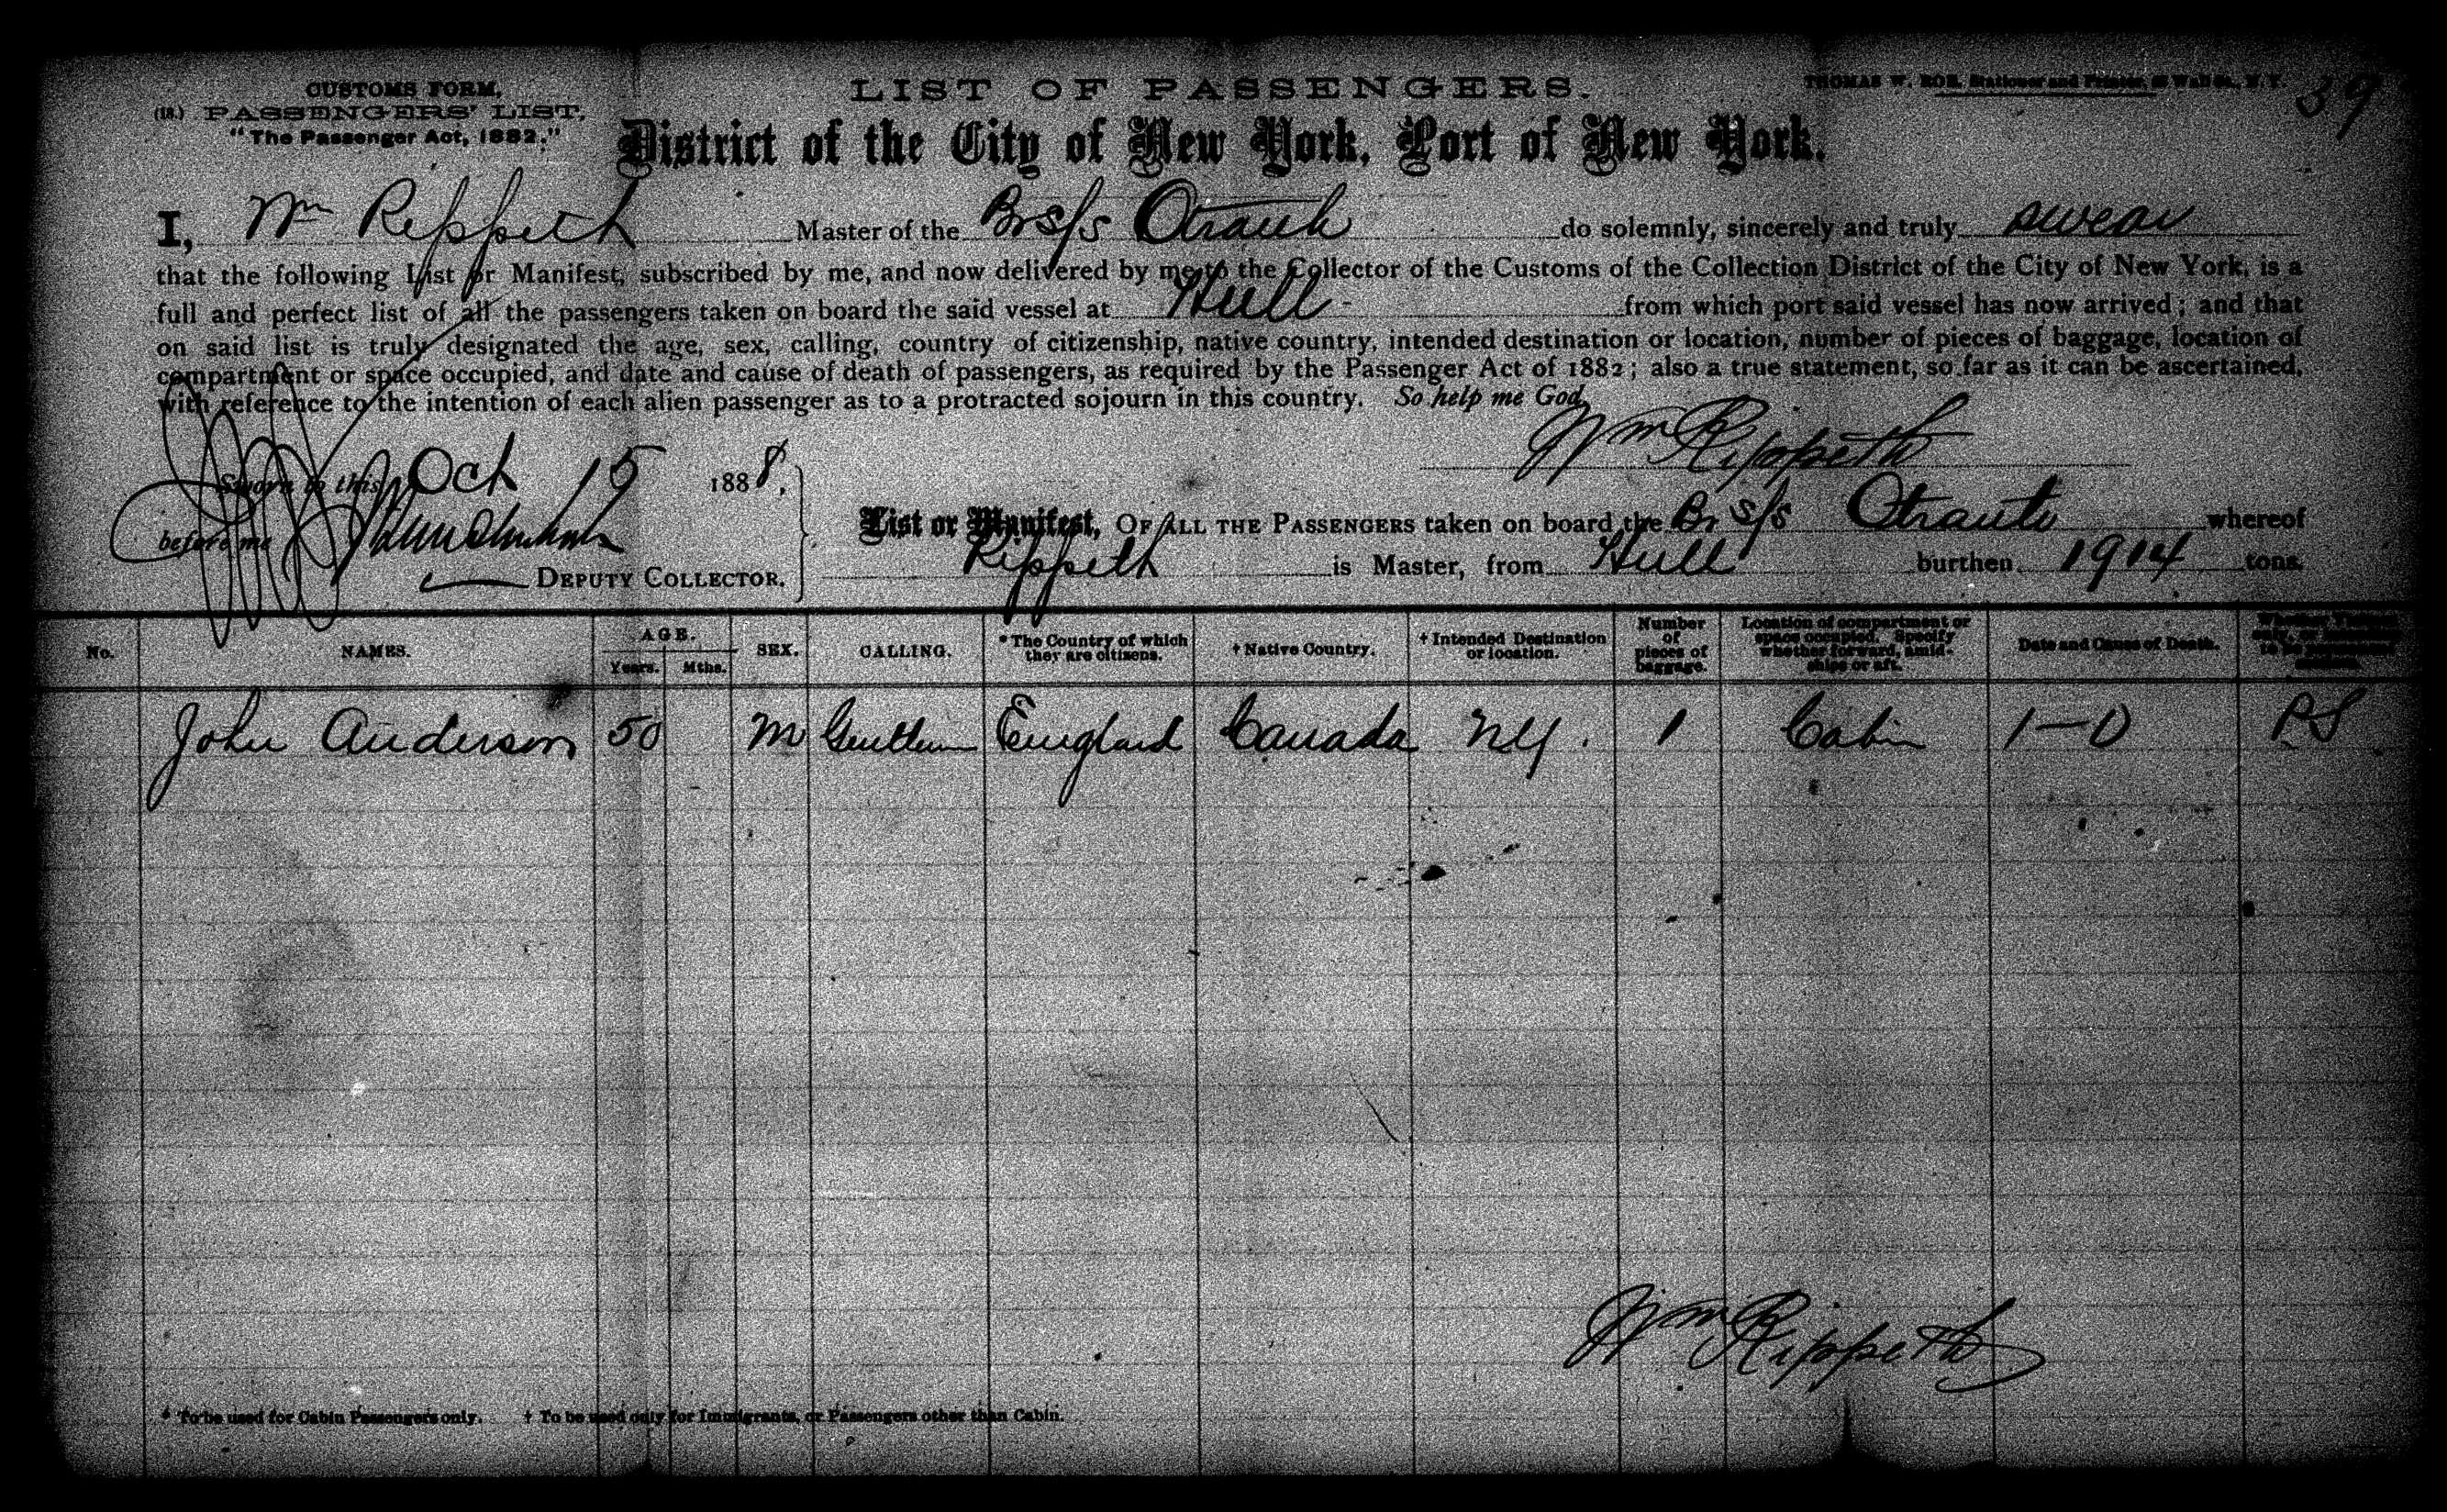 CUSTOMS FORM.
(18.) PASSENGERS' LIST.
"The Passenger Act, 1882."
LIST OF PASSENGERS.
THOMAS W. ROE, Stationer and Printer, Wall St., N.Y.
39
District of the City of New York, Port of New York.
I, Wm Rippeth Master of the Br s/s Otranto do solemnly, sincerely and truly swear
that the following List or Manifest, subscribed by me, and now delivered by me to the Collector of the Customs of the Collection District of the City of New York, is a
full and perfect list of all the passengers taken on board the said vessel at Hull from which port said vessel has now arrived; and that
on said list is truly designated the age, sex, calling, country of citizenship, native country, intended destination or location, number of pieces of baggage, location of
compartment or space occupied, and date and cause of death of passengers, as required by the Passenger Act of 1882; also a true statement, so far as it can be ascertained,
with reference to the intention of each alien passenger as to a protracted sojourn in this country. So help me God.
Wm Rippeth
Sworn to this Oct 15 1888,
before me
DEPUTY COLLECTOR.
List or Manifest, OF ALL THE PASSENGERS taken on board the Br s/s Otranto whereof
Rippeth is Master, from Hull burthen 1914 tons.
No. NAMES. AGE. Years. Mths. SEX. CALLING. *The Country of which they are citizens. †Native Country. †Intended Destination or location. Number of pieces of baggage. Location of compartment or space occupied. Specify whether forward, amidships or aft. Date and Cause of Death.
John Anderson 50 M Gentleman England Canada NY. 1 Cabin 1-0 PS
Wm Rippeth
* To be used for Cabin Passengers only. † To be used only for Immigrants, or Passengers other than Cabin.